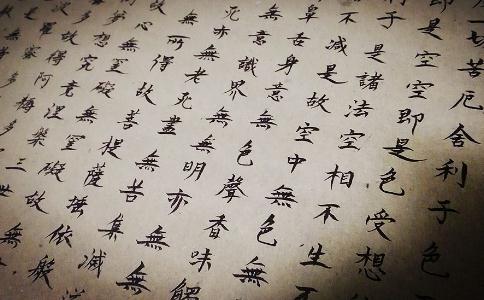 切苦厄舍利子色
即是空空即是色受想
子是諸法空相不生不
不減是故空中無色無
鼻舌身意無色聲香味觸
無意識界無無明亦無無
死亦無老死盡無苦集滅
所得故菩提薩埵依般
心無罣礙無罣礙故無
想究竟涅槃三世
得阿耨多